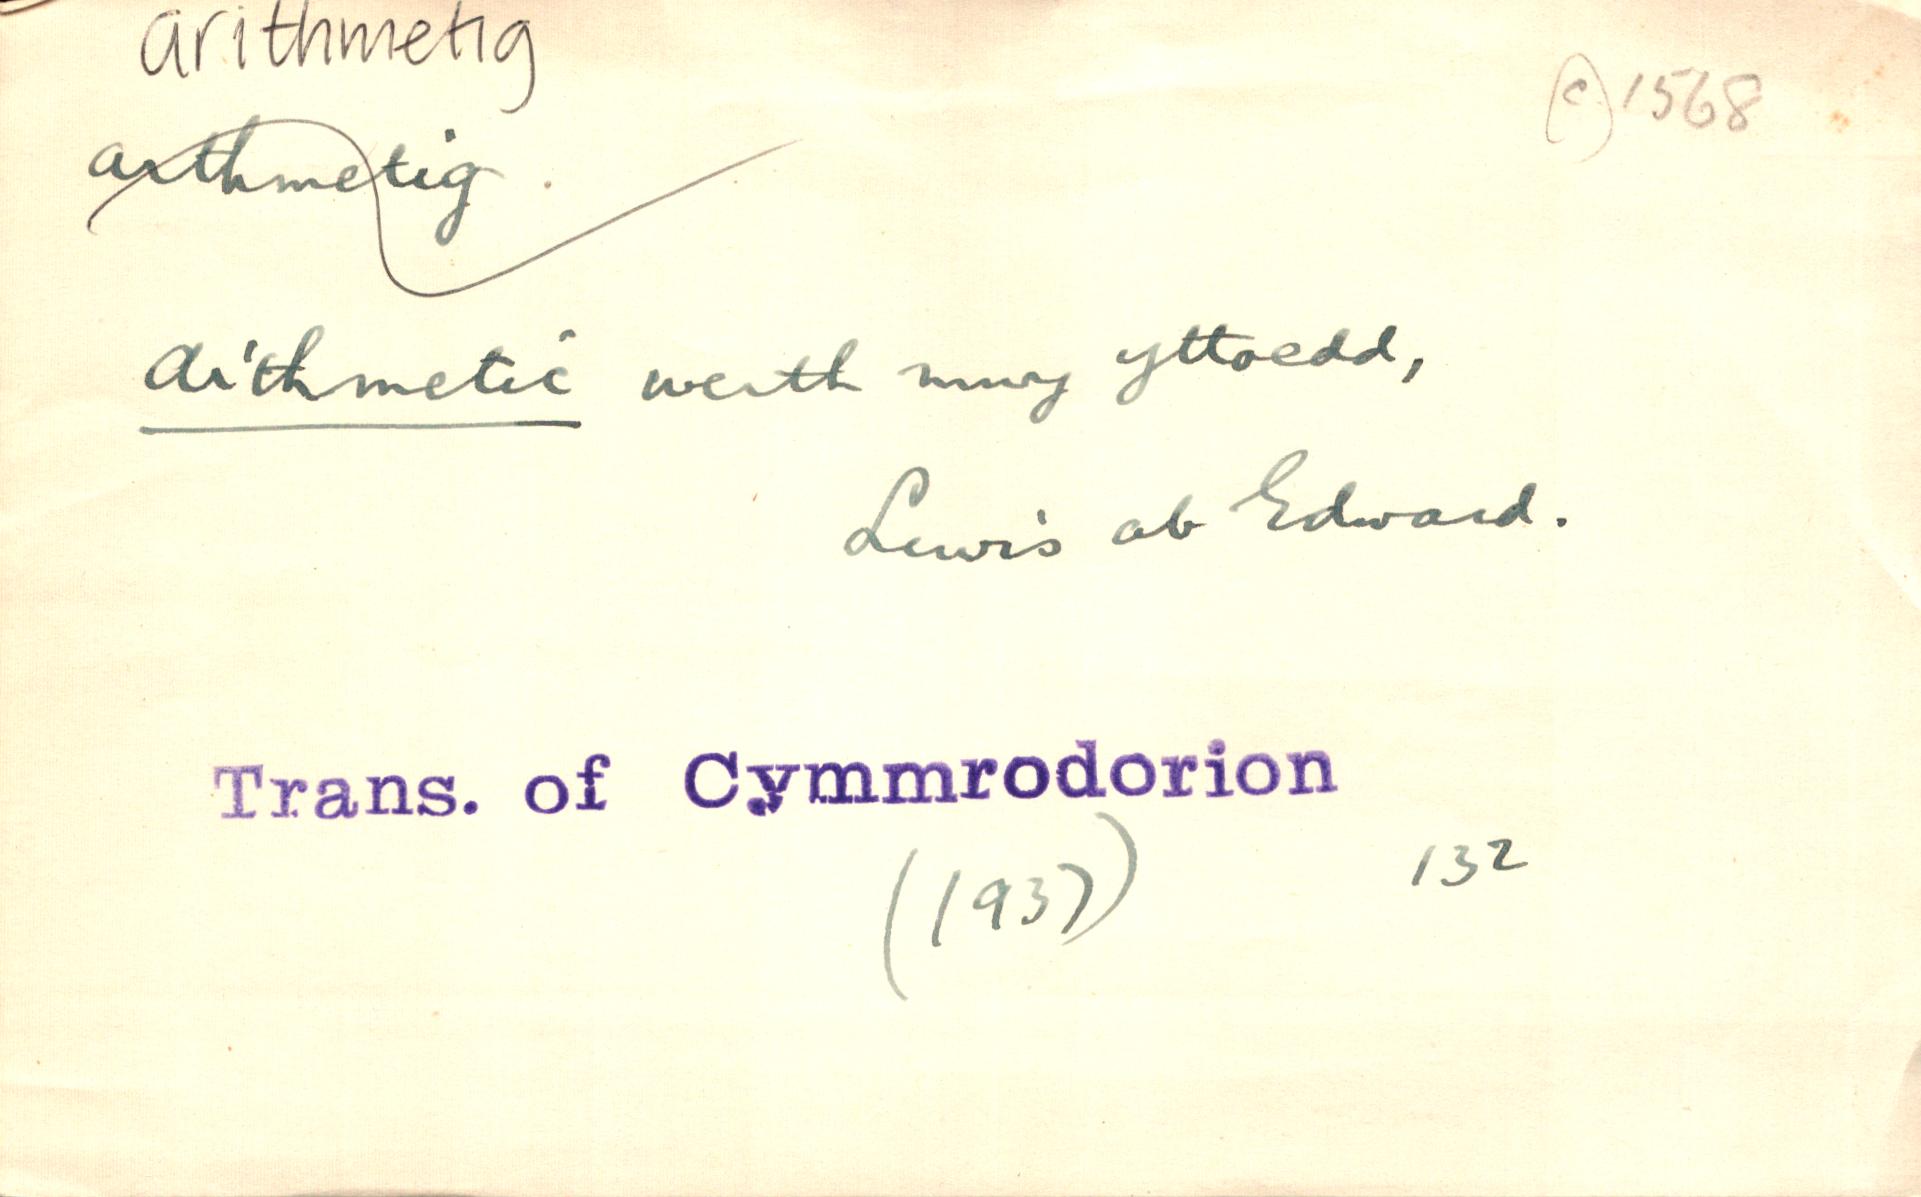 arithmetig
(c) 1568
arthmetig.
Arithmetic werth mwy yttoedd,
Lewis ab Edward.
Trans. of Cymmrodorion
(1937) 132